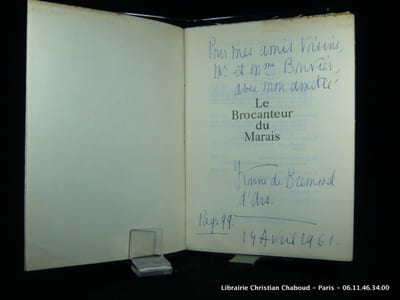 Pour mes amis Voisins,
Mr et Mme Bouvier,
avec mon amitié
Le
Brocanteur
du
Marais
Yvonne de Bremond
d'Ars.
Page 99.
14 Avril 1961.
Librairie Christian Chaboud - Paris - 06.11.46.34.00